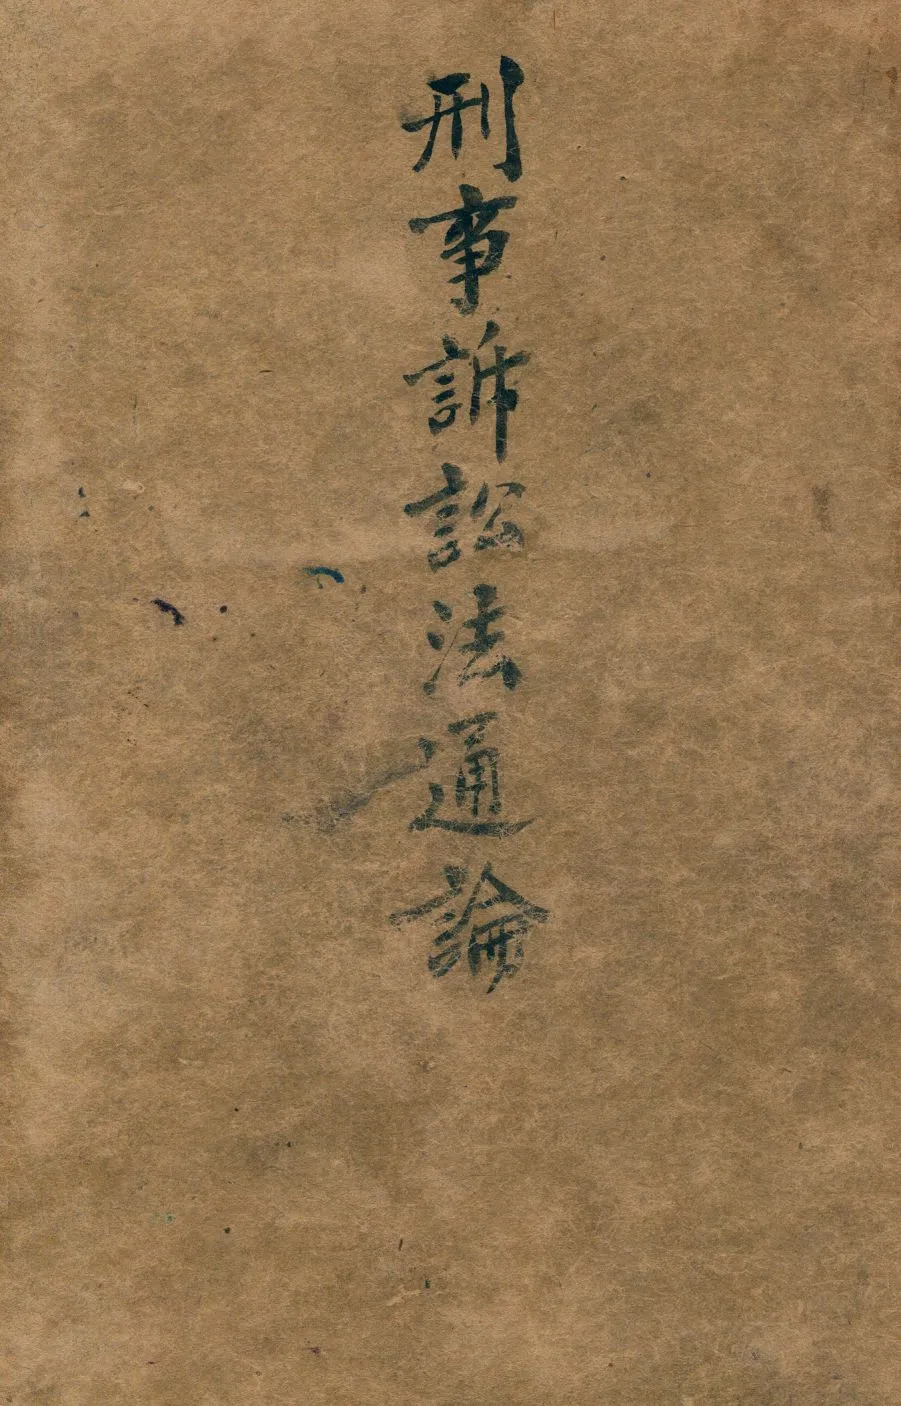 刑事訴訟法通論